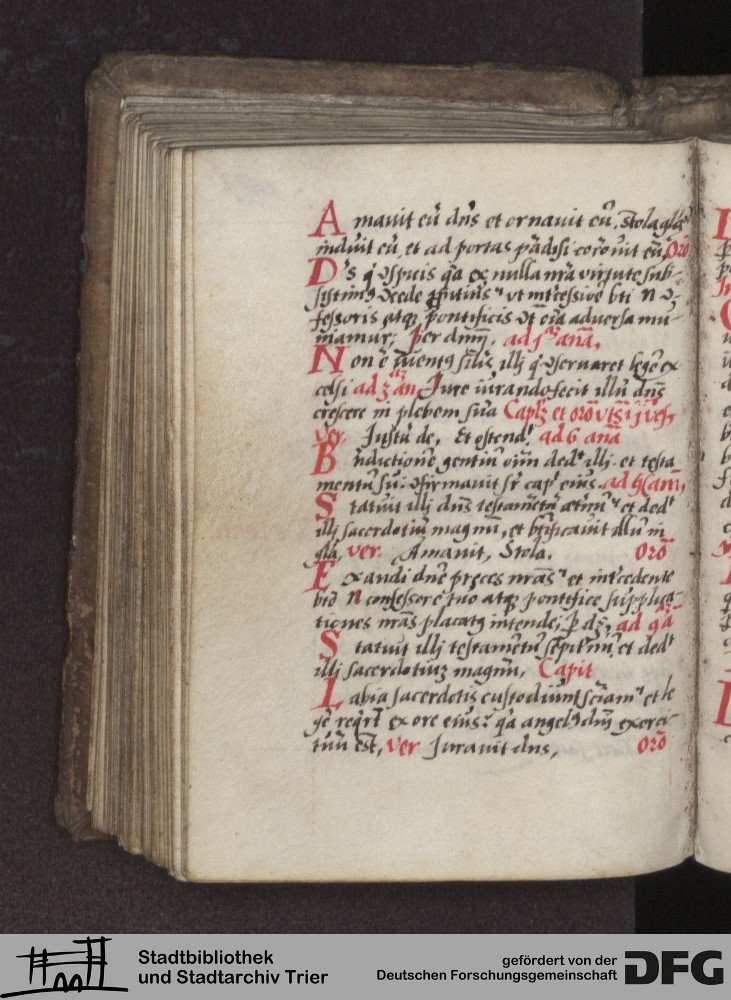 Amauit eū dn̄s et ornauit eū, stola glē
induit eū, et ad portas pādisi coronuit eū, Orō
Ds q̄ ꝯspicis q̄a ex nulla nr̄a virtute sub-
fessoris atqꝫ pontificis ꝯt̄ oīa aduersa mu-
niamur, per dn̄m, ad j anā,
Non ē inuentꝰ silīs illj q̄ ꝯseruaret legē ex
celsi ad 3 an Jure iurando fecit illū dn̄s
crescere in plebem suā Caplꝫ et orō
ver. Justū de, Et ostend, ad 6 anā
Bn̄dictionē gentiū oīm dedᵗ illj et testa
mentū suū ꝯfirmauit sr̄ capᵗ eiuſ.
Statuit illj dn̄s testamētū et dedᵗ
illj sacerdotiū magnū, et btīficauit illū in
glā, ver. Amauit, Stola. Orō
Exaudi dnē preces nrās et intᵉcedente
btō N confessore tuo atqꝫ pontifice supplica-
tiones nrās placatꝰ intende, p̄ d, ad 9ā
Statuit illj testamentū sempitnū, et dedᵗ
illj sacerdotiuꝫ magnū, Capit
Labia sacerdotis custodiunt sciam et le
gē reqrt̄ ex ore eius: q̄a angelꝰ dn̄j exerci-
tuū est, ver Jurauit dns, Orō
Stadtbibliothek
und Stadtarchiv Trier
gefördert von der
Deutschen Forschungsgemeinschaft
DFG